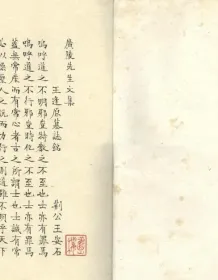 廣陵先生文集
王逢原墓誌銘
荆公王安石
嗚呼道之不明邪豈特教之不至也士亦有罪焉
嗚呼道之不行邪豈特化之不至也士亦有罪焉
蓋無常產而有常心者古之所謂士也士誠有常
心以操聖人之說而力行之則道雖不明乎天下